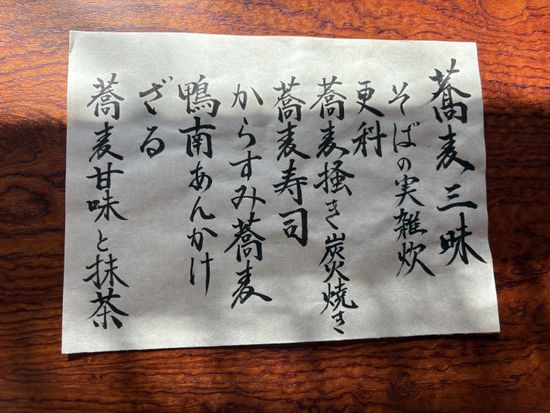 蕎麦三昧
そばの実雑炊
更科
蕎麦掻き炭火焼き
蕎麦寿司
からすみ蕎麦
鴨南あんかけ
ざる
蕎麦甘味と抹茶